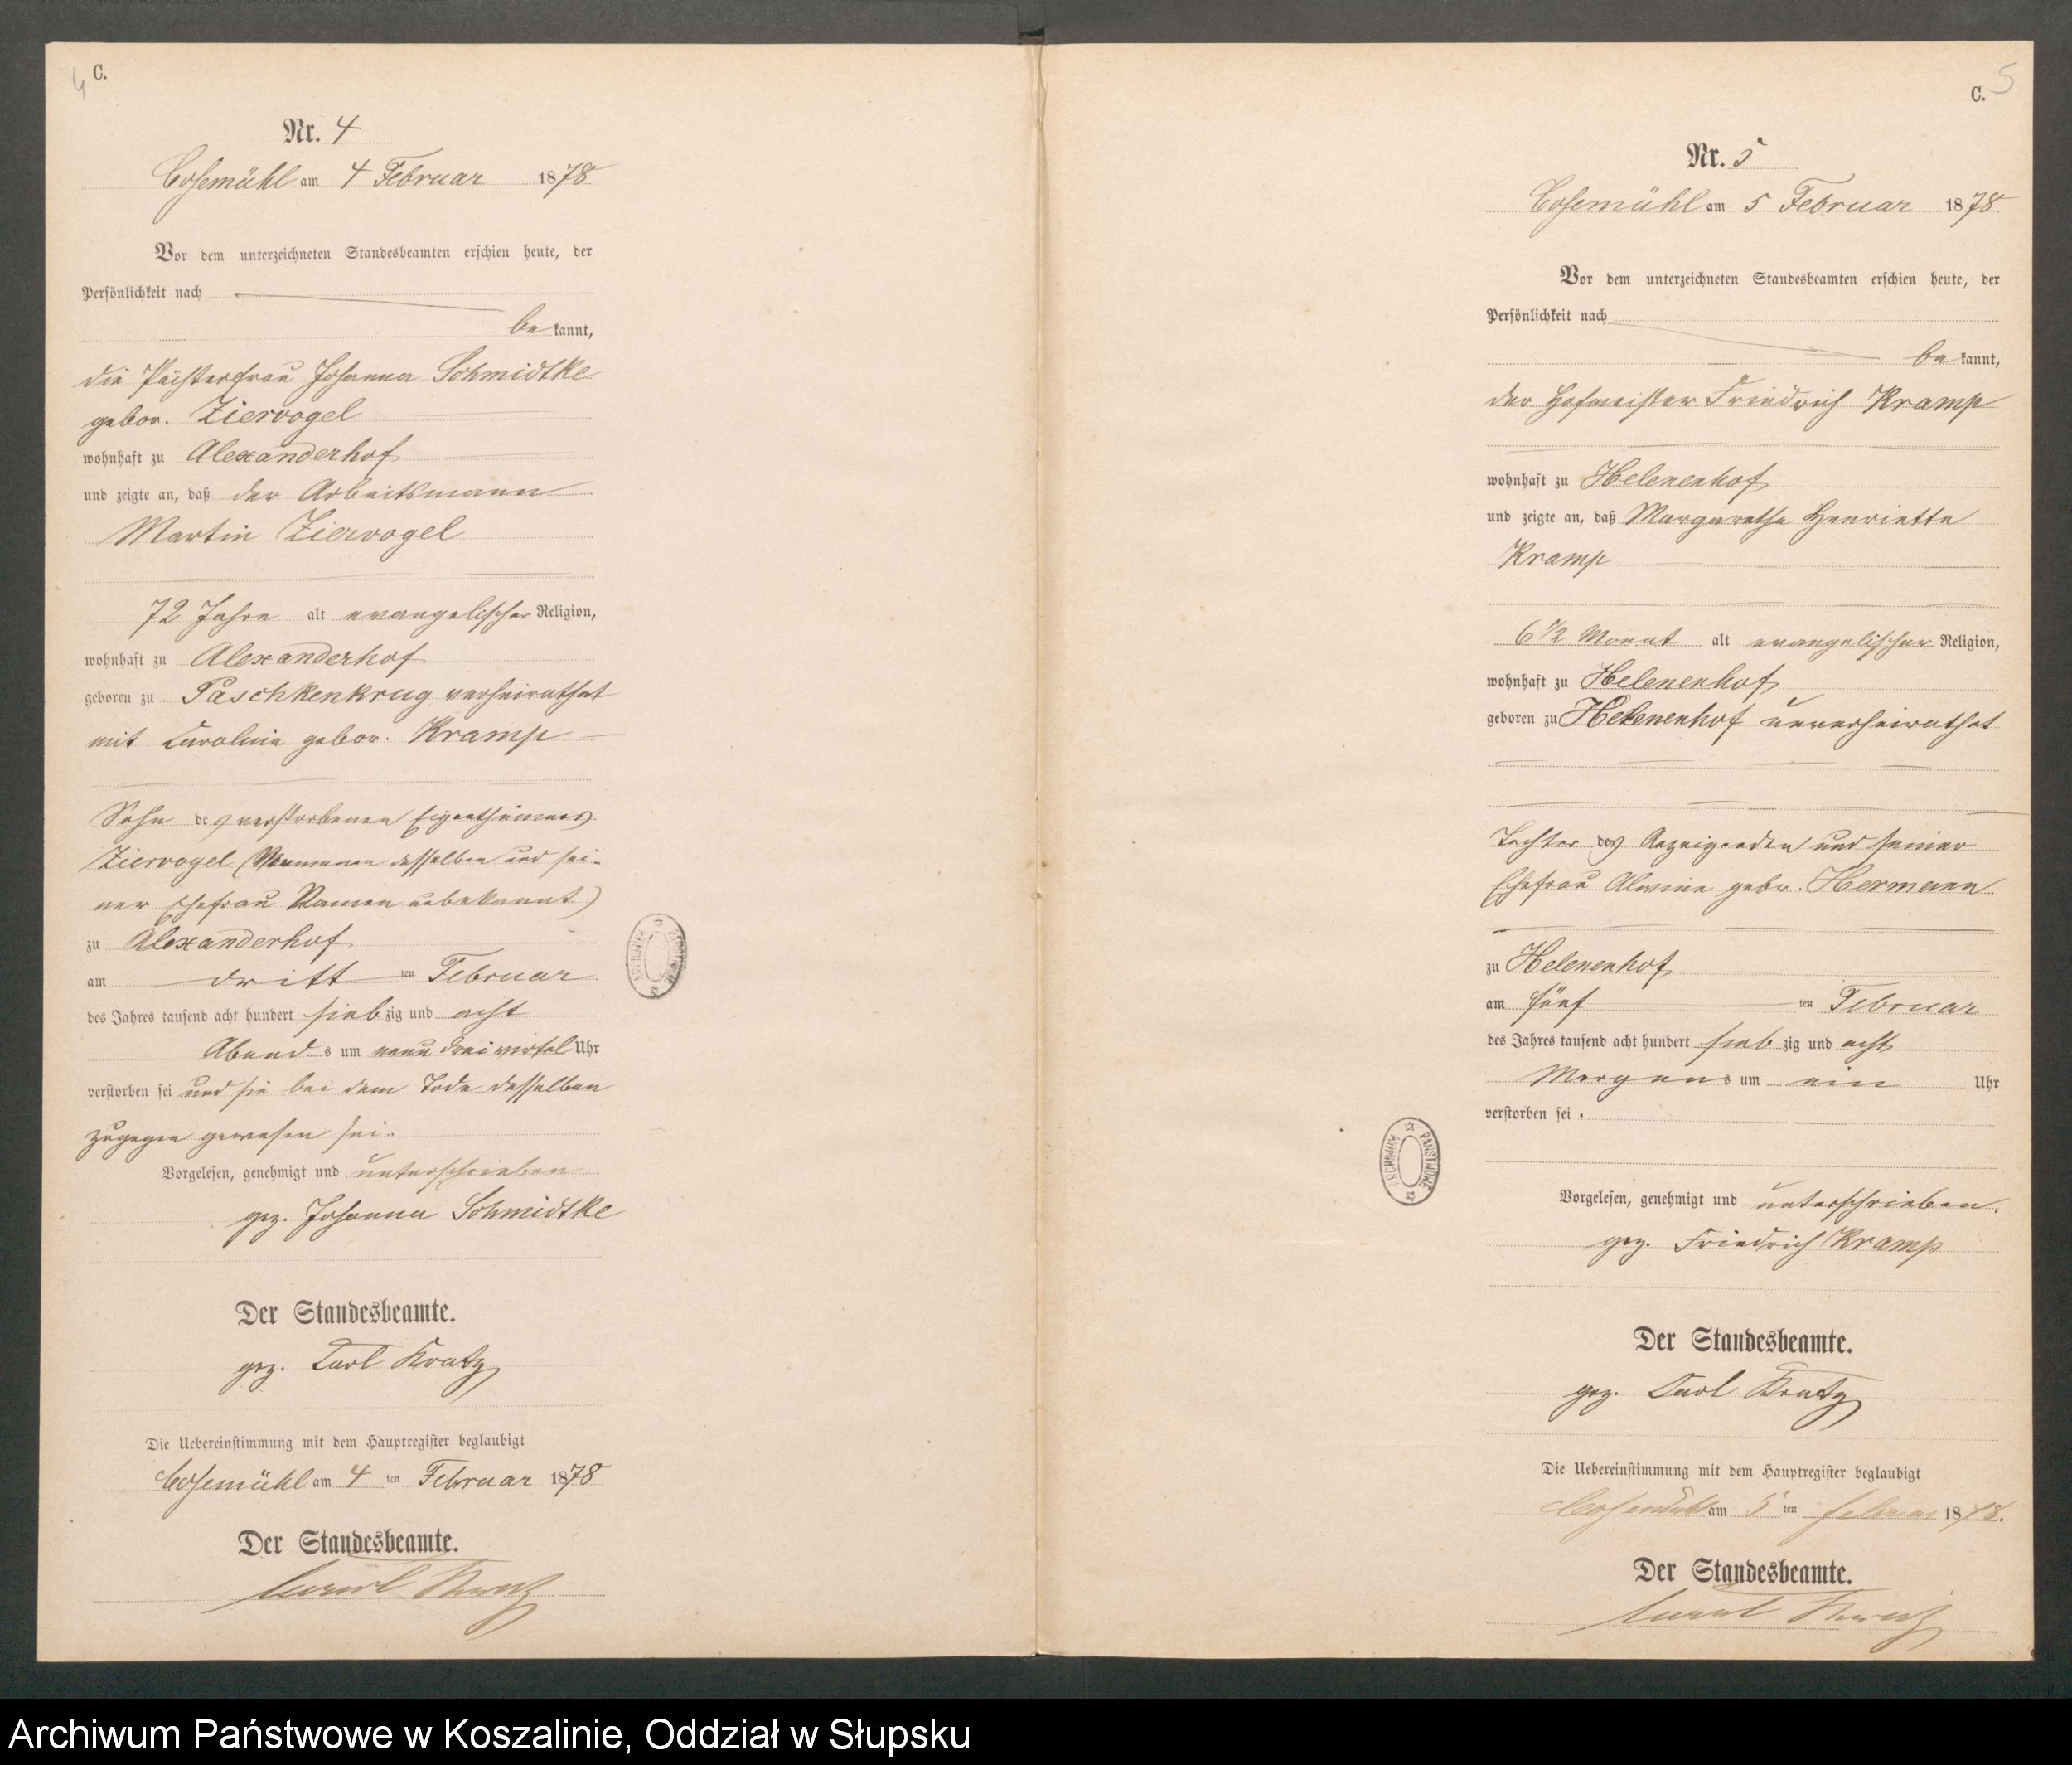 4
C.
Nr. 4
Cosemühl am 4 Februar 1878
Vor dem unterzeichneten Standesbeamten erschien heute, der
Persönlichkeit nach
bekannt,
die Pächterfrau Johanna Schmidtke
gebor. Ziervogel
wohnhaft zu Alexanderhof
und zeigte an, daß der Arbeitsmann
Martin Ziervogel
72 Jahre alt evangelischer Religion,
wohnhaft zu Alexanderhof
geboren zu Paschkenkrug verheirathet
mit Caroline gebor. Kramp
Sohn des verstorbenen Eigenthümers
Ziervogel (Vornamen desselben und sei-
ner Ehefrau Namen unbekannt)
zu Alexanderhof
am dritten Februar
des Jahres tausend acht hundert siebzig und acht
Abends um neun dreiviertel Uhr
verstorben sei und sie bei dem Tode desselben
zugegen gewesen sei.
Vorgelesen, genehmigt und unterschrieben
gez. Johanna Schmidtke
Der Standesbeamte.
gez. Carl Kratz
Die Uebereinstimmung mit dem Hauptregister beglaubigt
Cosemühl am 4 ten Februar 1878
Der Standesbeamte.
Carl Kratz
ARCHIWUM PAŃSTWOWE
5
C.
Nr. 5
Cosemühl am 5 Februar 1878
Vor dem unterzeichneten Standesbeamten erschien heute, der
Persönlichkeit nach
bekannt,
der Hofmeister Friedrich Kramp
wohnhaft zu Helenenhof
und zeigte an, daß Margarethe Henriette
Kramp
6 1/2 Monat alt evangelischer Religion,
wohnhaft zu Helenenhof
geboren zu Helenenhof unverheirathet
Tochter des Anzeigenden und seiner
Ehefrau Alwine gebor. Hermann
zu Helenenhof
am fünften Februar
des Jahres tausend acht hundert siebzig und acht
Morgens um ein Uhr
verstorben sei.
Vorgelesen, genehmigt und unterschrieben.
gez. Friedrich Kramp
Der Standesbeamte.
gez. Carl Kratz
Die Uebereinstimmung mit dem Hauptregister beglaubigt
Cosemühl am 5 ten Februar 1878.
Der Standesbeamte.
Carl Kratz
ARCHIWUM PAŃSTWOWE
Archiwum Państwowe w Koszalinie, Oddział w Słupsku